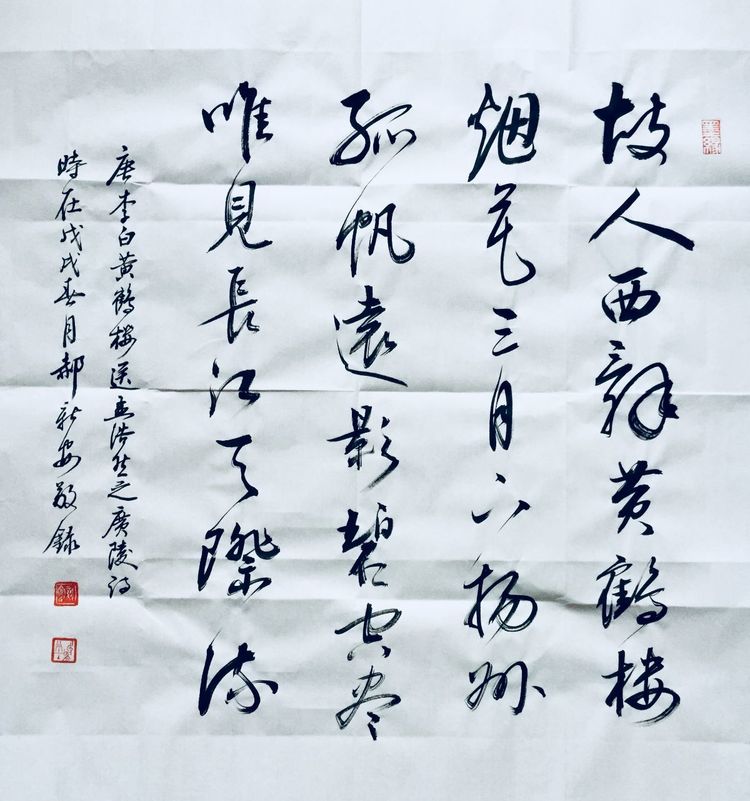 故人西辞黄鹤楼
烟花三月下扬州
孤帆遠影碧空尽
唯見長江天際流
唐李白黄鶴楼送孟浩然之廣陵诗
時在戊戌春月郝新安敬録